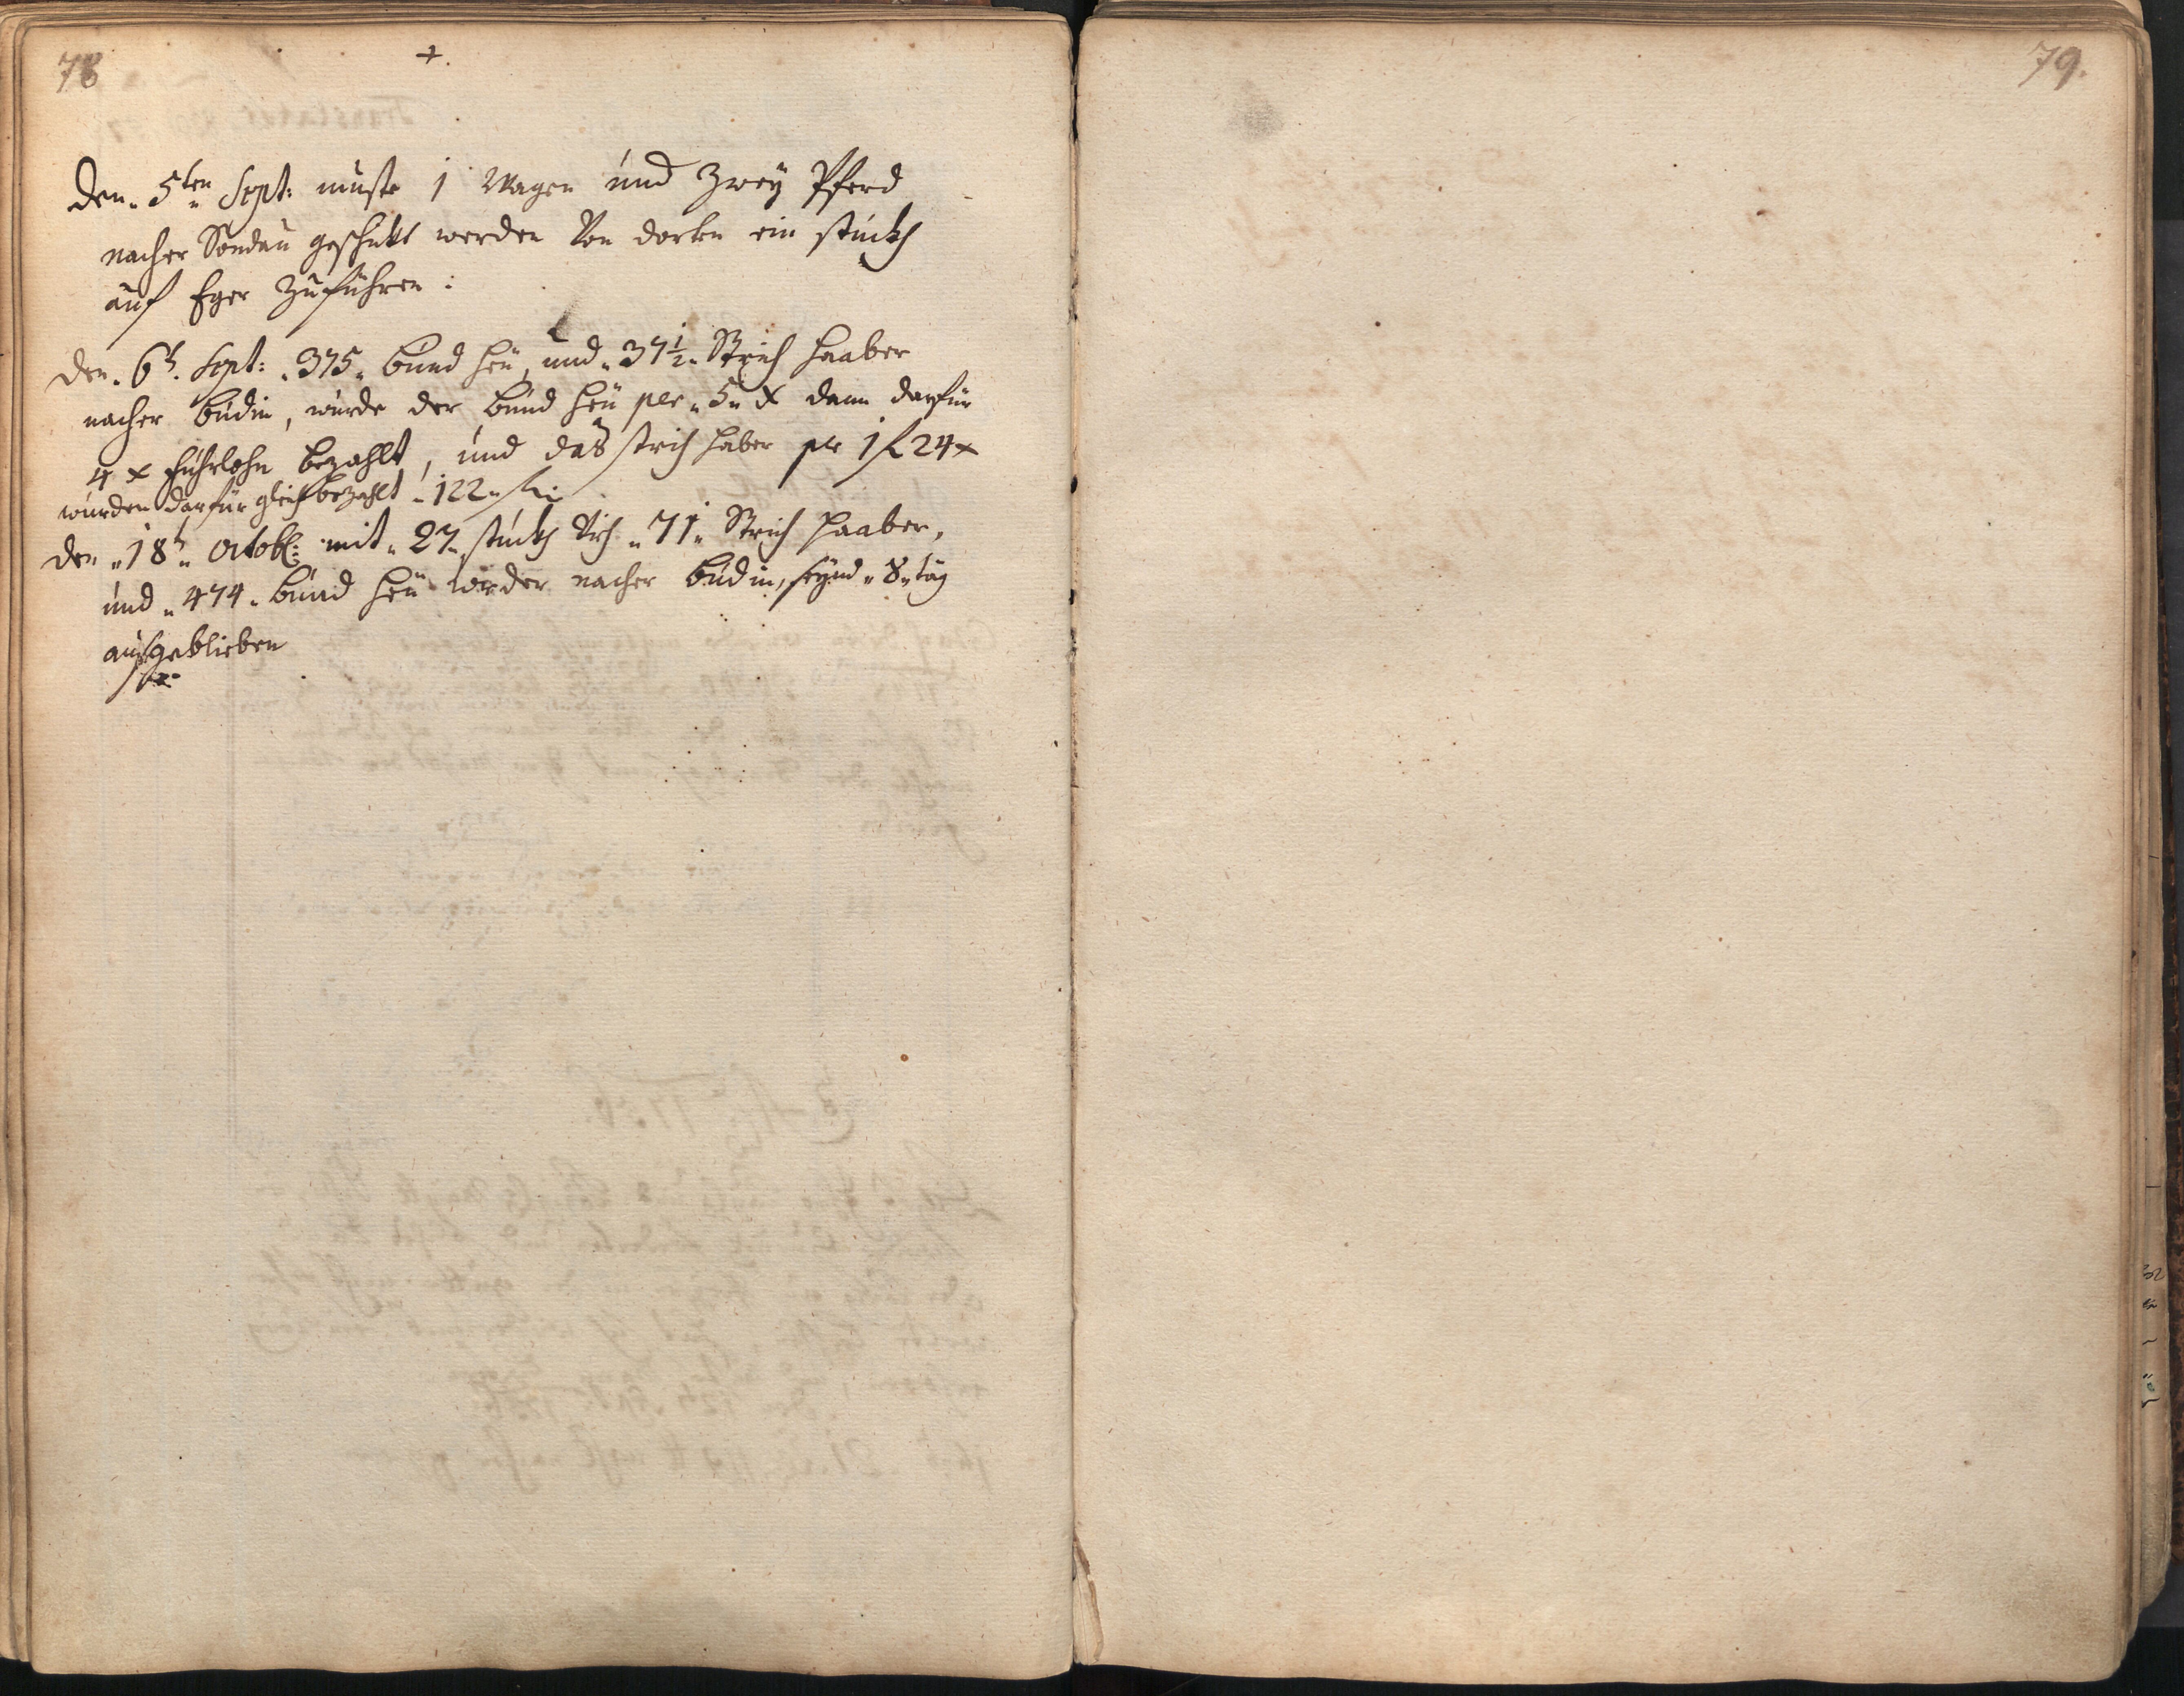 78
+.
Den. 5ten Sept: muste 1 Wagen und zweÿ Pferd
nacher Sandau geschikt werden Von dorten ein stückh
auf Eger zuführen:
den. 6t. Sept: 375. bund heü, und 37 1/2 Strich haaber
nacher budin, wurde der bund heü per 5 x dann darfür
4 x fuhrlohn bezahlt, und das strich haber per 1 f 24 x
wurden darfür gleich bezahlt 122
den 18t. Octob: mit 27 stückh 71 Strich haaber,
und 474 bund heü wider nacher budin, seÿnd 8 täg
ausgeblieben
79.